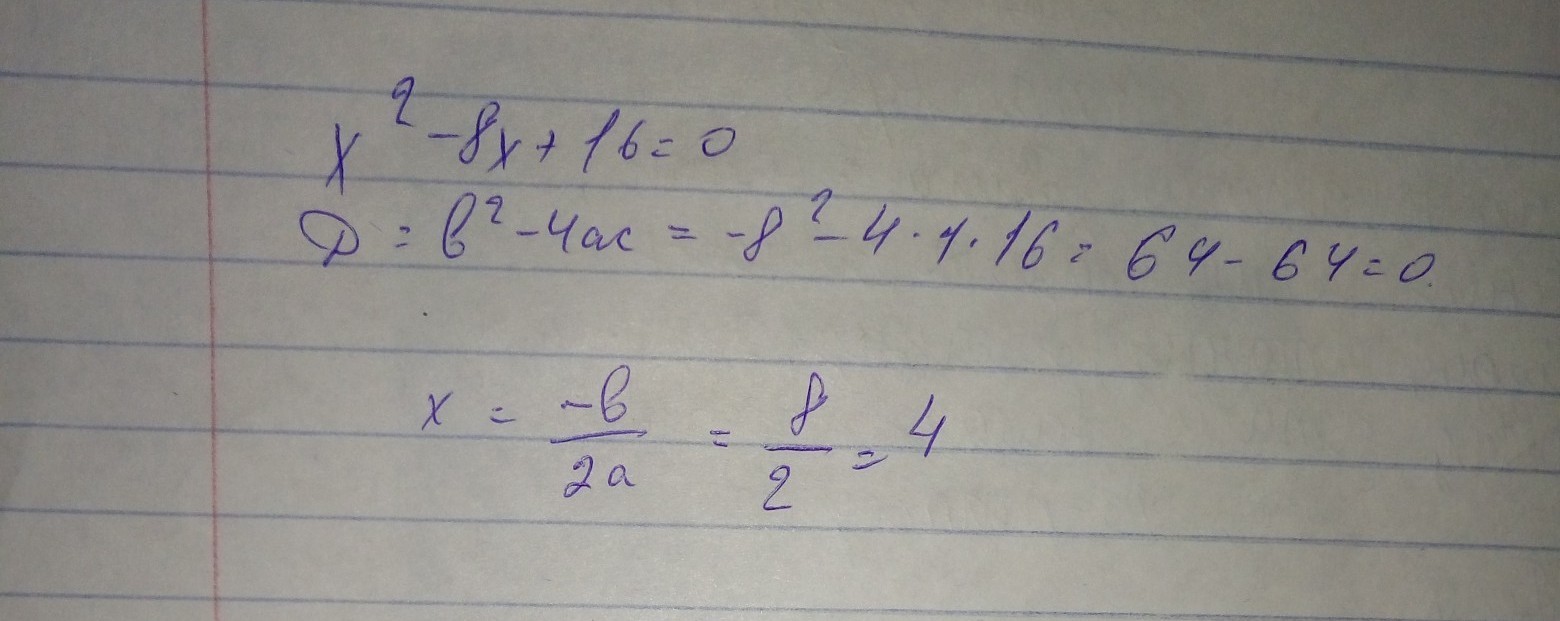 x² - 8x + 16 = 0
D = b² - 4ac = -8² - 4 · 1 · 16 = 64 - 64 = 0.
x = -b/2a = 8/2 = 4